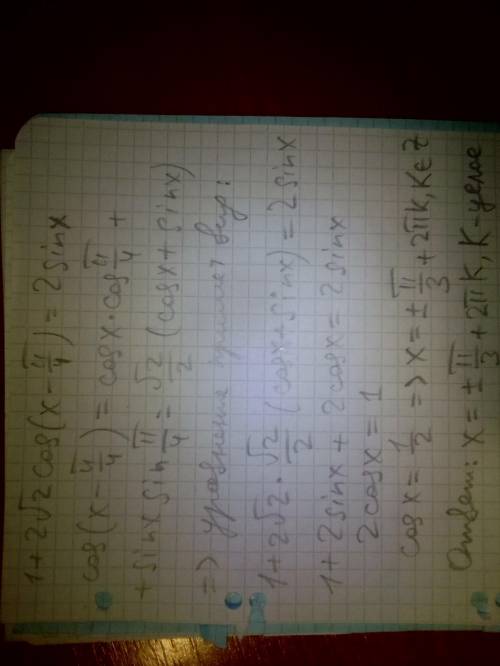 1+2√2 cos(x-π/4) = 2 sinx
cos(x-π/4) = cosx·cos π/4 +
+ sinx sin π/4 = √2/2 (cosx + sinx)
=> уравнение примет вид:
1+2√2·√2/2 (cosx+sinx) = 2 sinx
1+2sinx + 2cosx = 2sinx
2cosx = 1
cosx = 1/2 => x = ± π/3 + 2πk, k∈Z
Ответ: x = ± π/3 + 2πk, k-целое